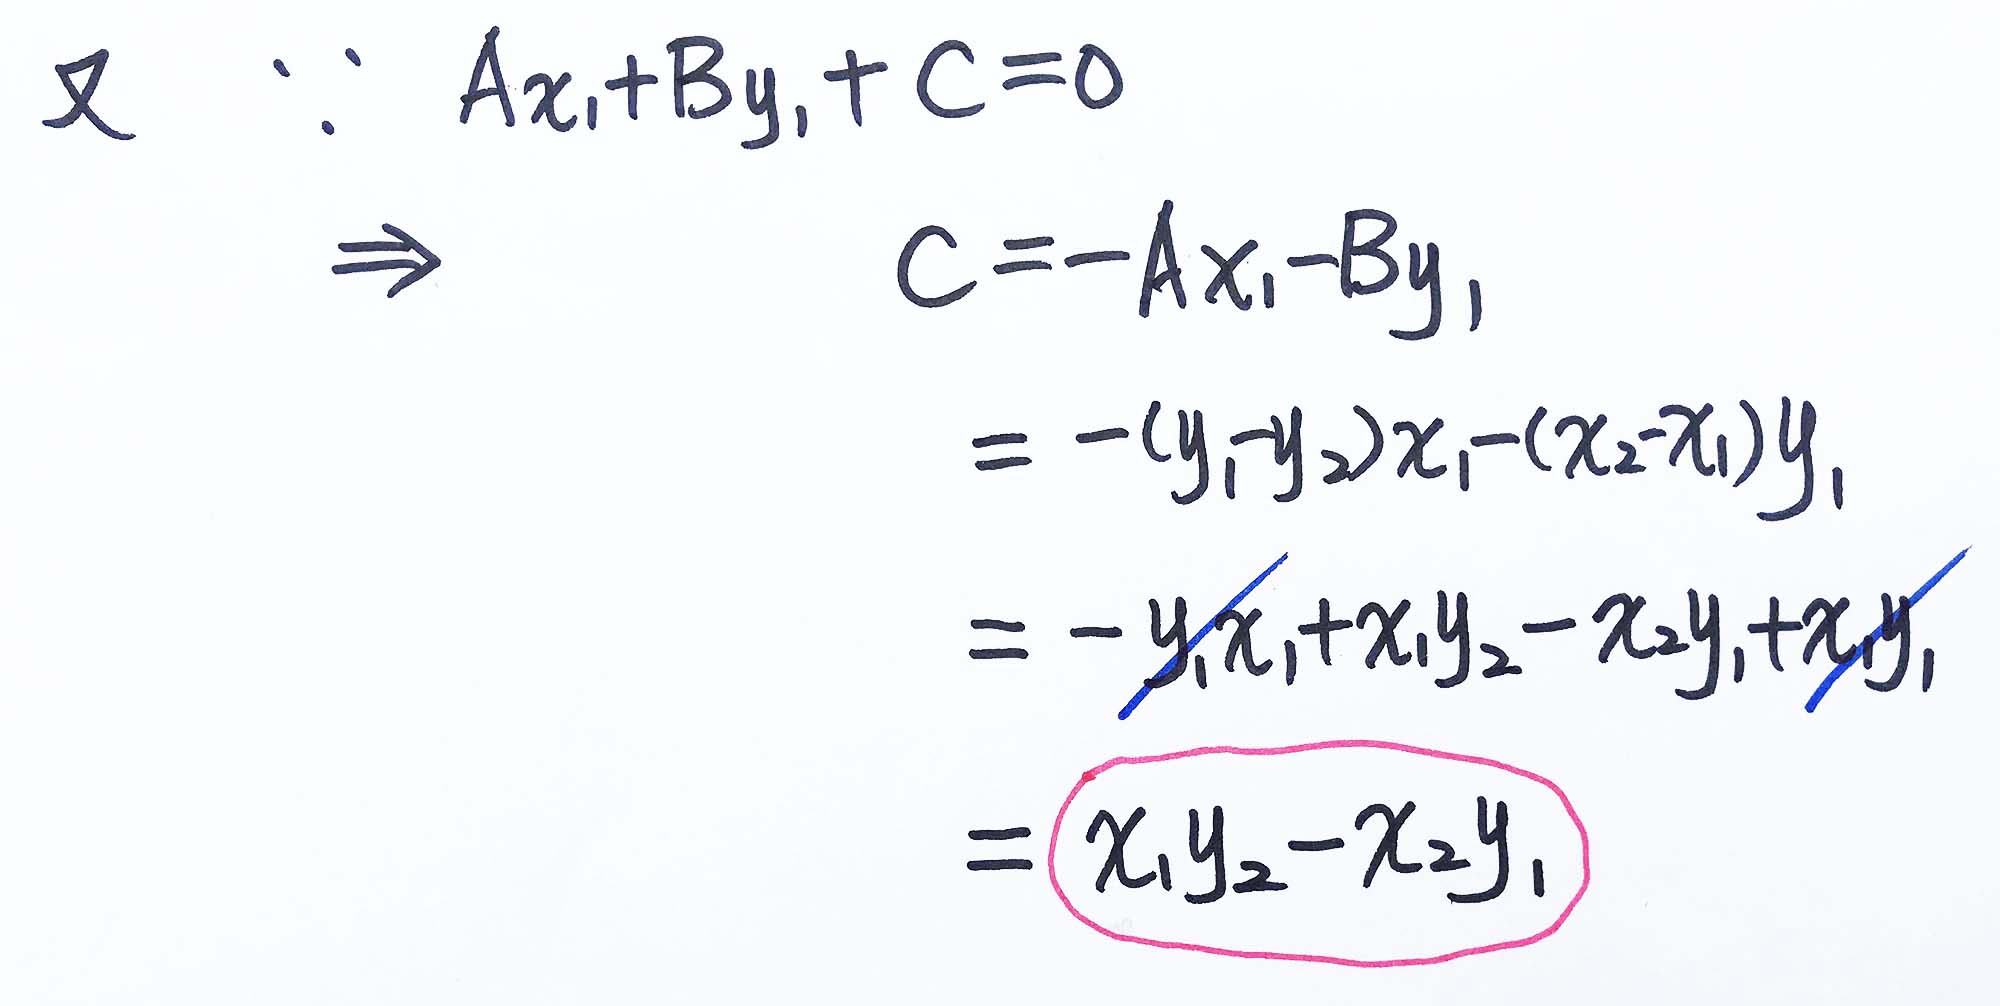 又 ∵ Ax₁+By₁+C=0
⇒ C=-Ax₁-By₁
= -(y₁-y₂)x₁-(x₂-x₁)y₁
= -y₁x₁+x₁y₂-x₂y₁+x₁y₁
= x₁y₂-x₂y₁